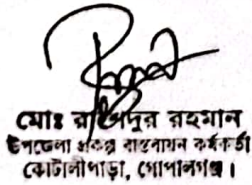 মোঃ রাশেদুর রহমান
উপজেলা প্রকল্প বাস্তবায়ন কর্মকর্তা
কোটালীপাড়া, গোপালগঞ্জ।